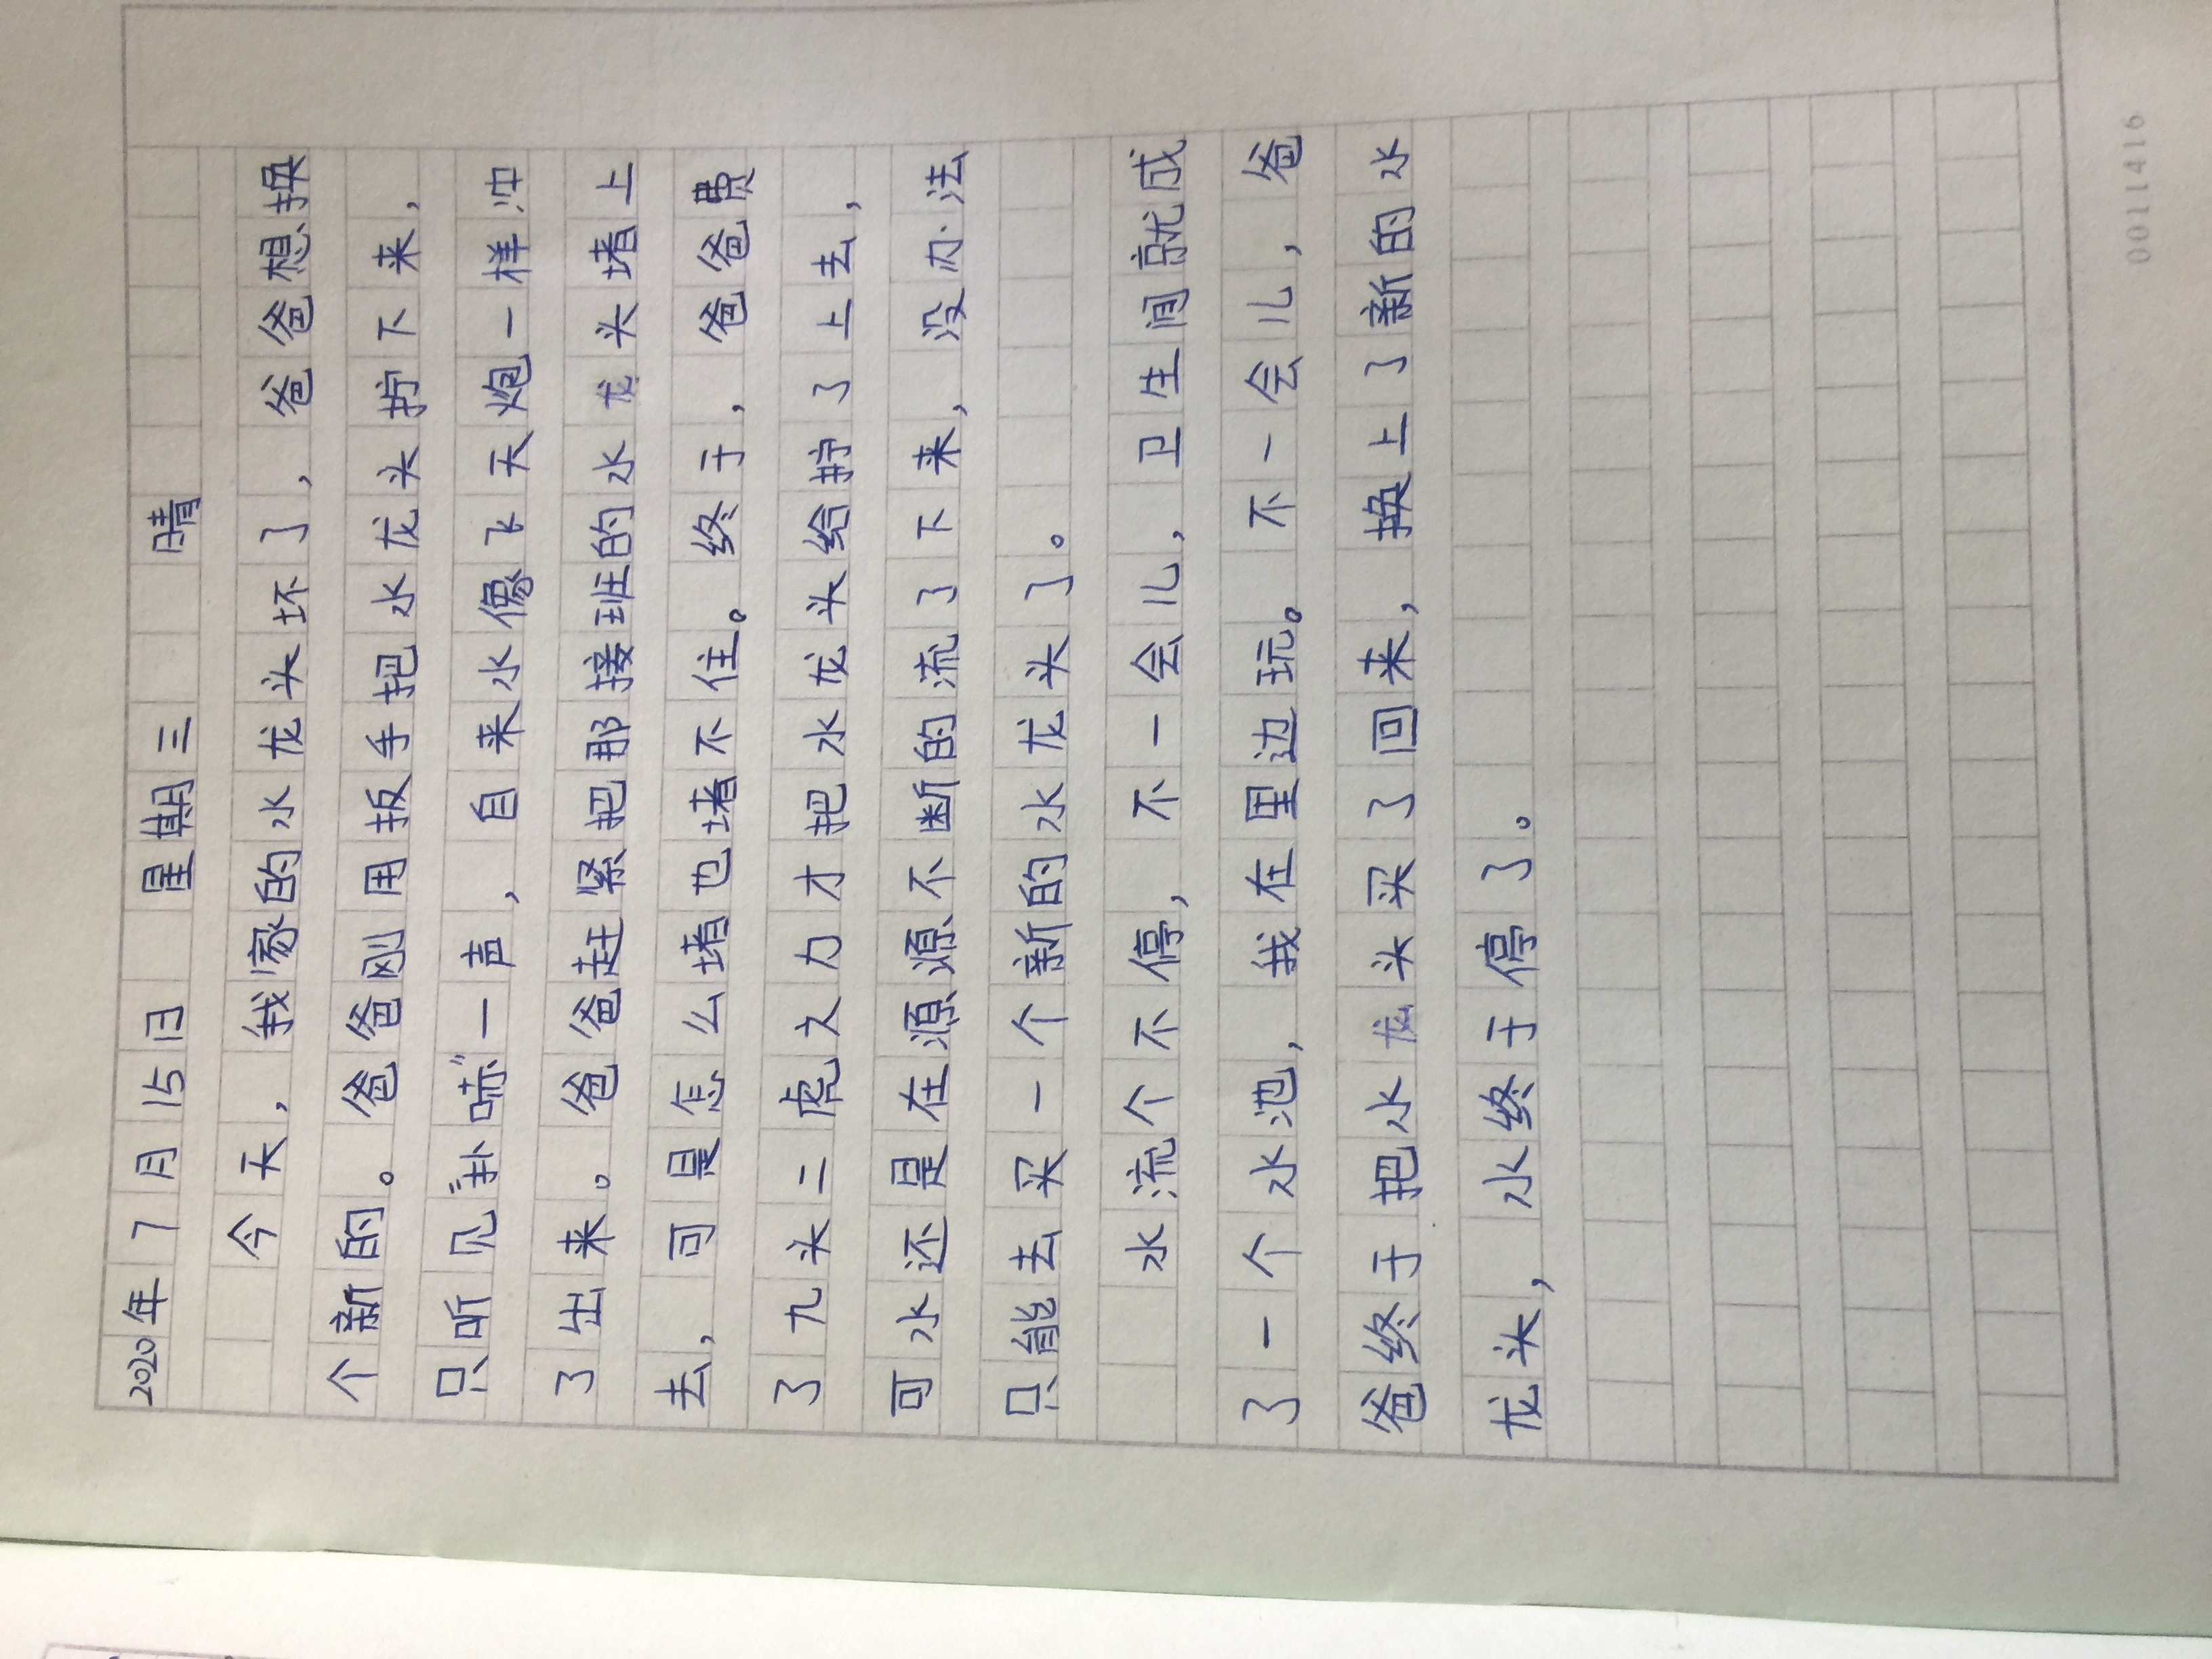 2020年7月15日 星期三 晴
今天，我家的水龙头坏了，爸爸想换
个新的。爸爸刚用扳手把水龙头拧下来，
只听见“扑哧”一声，自来水像飞天炮一样冲
了出来。爸爸赶紧把那接班的水龙头堵上
去，可是怎么堵也堵不住。终于，爸爸费
了九头二虎之力才把水龙头给拧了上去，
可水还是在源源不断的流了下来，没办法
只能去买一个新的水龙头了。
水流个不停，不一会儿，卫生间就成
了一个水池，我在里边玩。不一会儿，爸
爸终于把水龙头买了回来，换上了新的水
龙头，水终于停了。
00011416